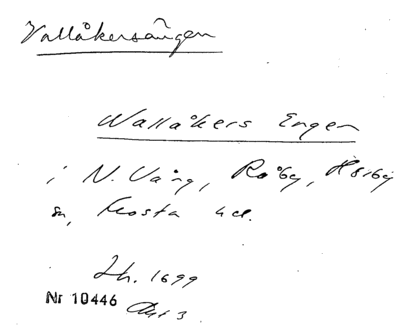 Vallåkersängen
Wallåkers Engen
i N. Vång, Råby, Hörby
sn, Frosta hd.
Jb. 1699
Nr 10446 Akt 3.